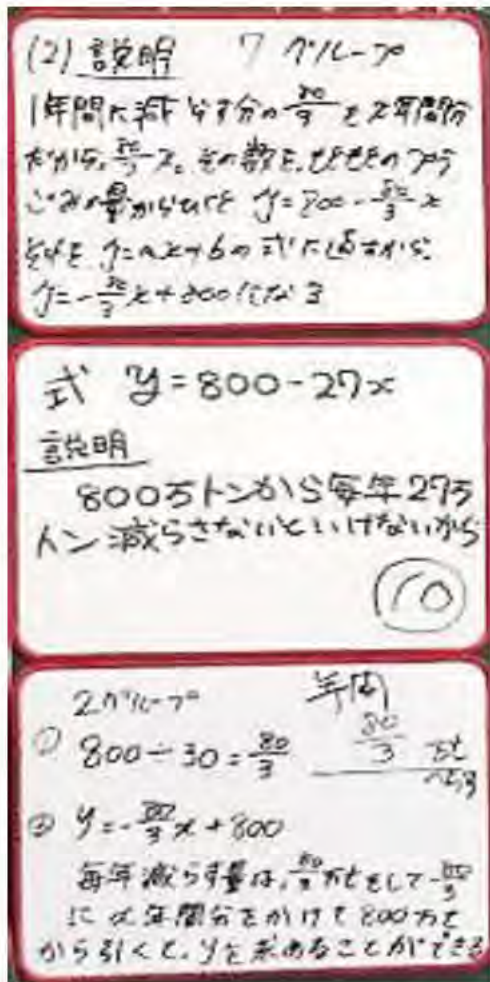 (2) 説明 7グループ
1年間に減らす分の80/3をx年間分
だから、80/3x。その数を、もともとのプラ
ごみの量からひくと y=800-80/3x
それを y=ax+bの式に直すから、
y=-80/3x+800になる
式 y=800-27x
説明
800万トンから毎年27万
トン減らさないといけないから
10
2グループ 年間
① 800÷30=80/3 80/3 万t
へらす
② y=-80/3x+800
毎年減らす量は、80/3万tをして-80/3
にx年間分をかけて800万t
から引くと、yを求めることができる